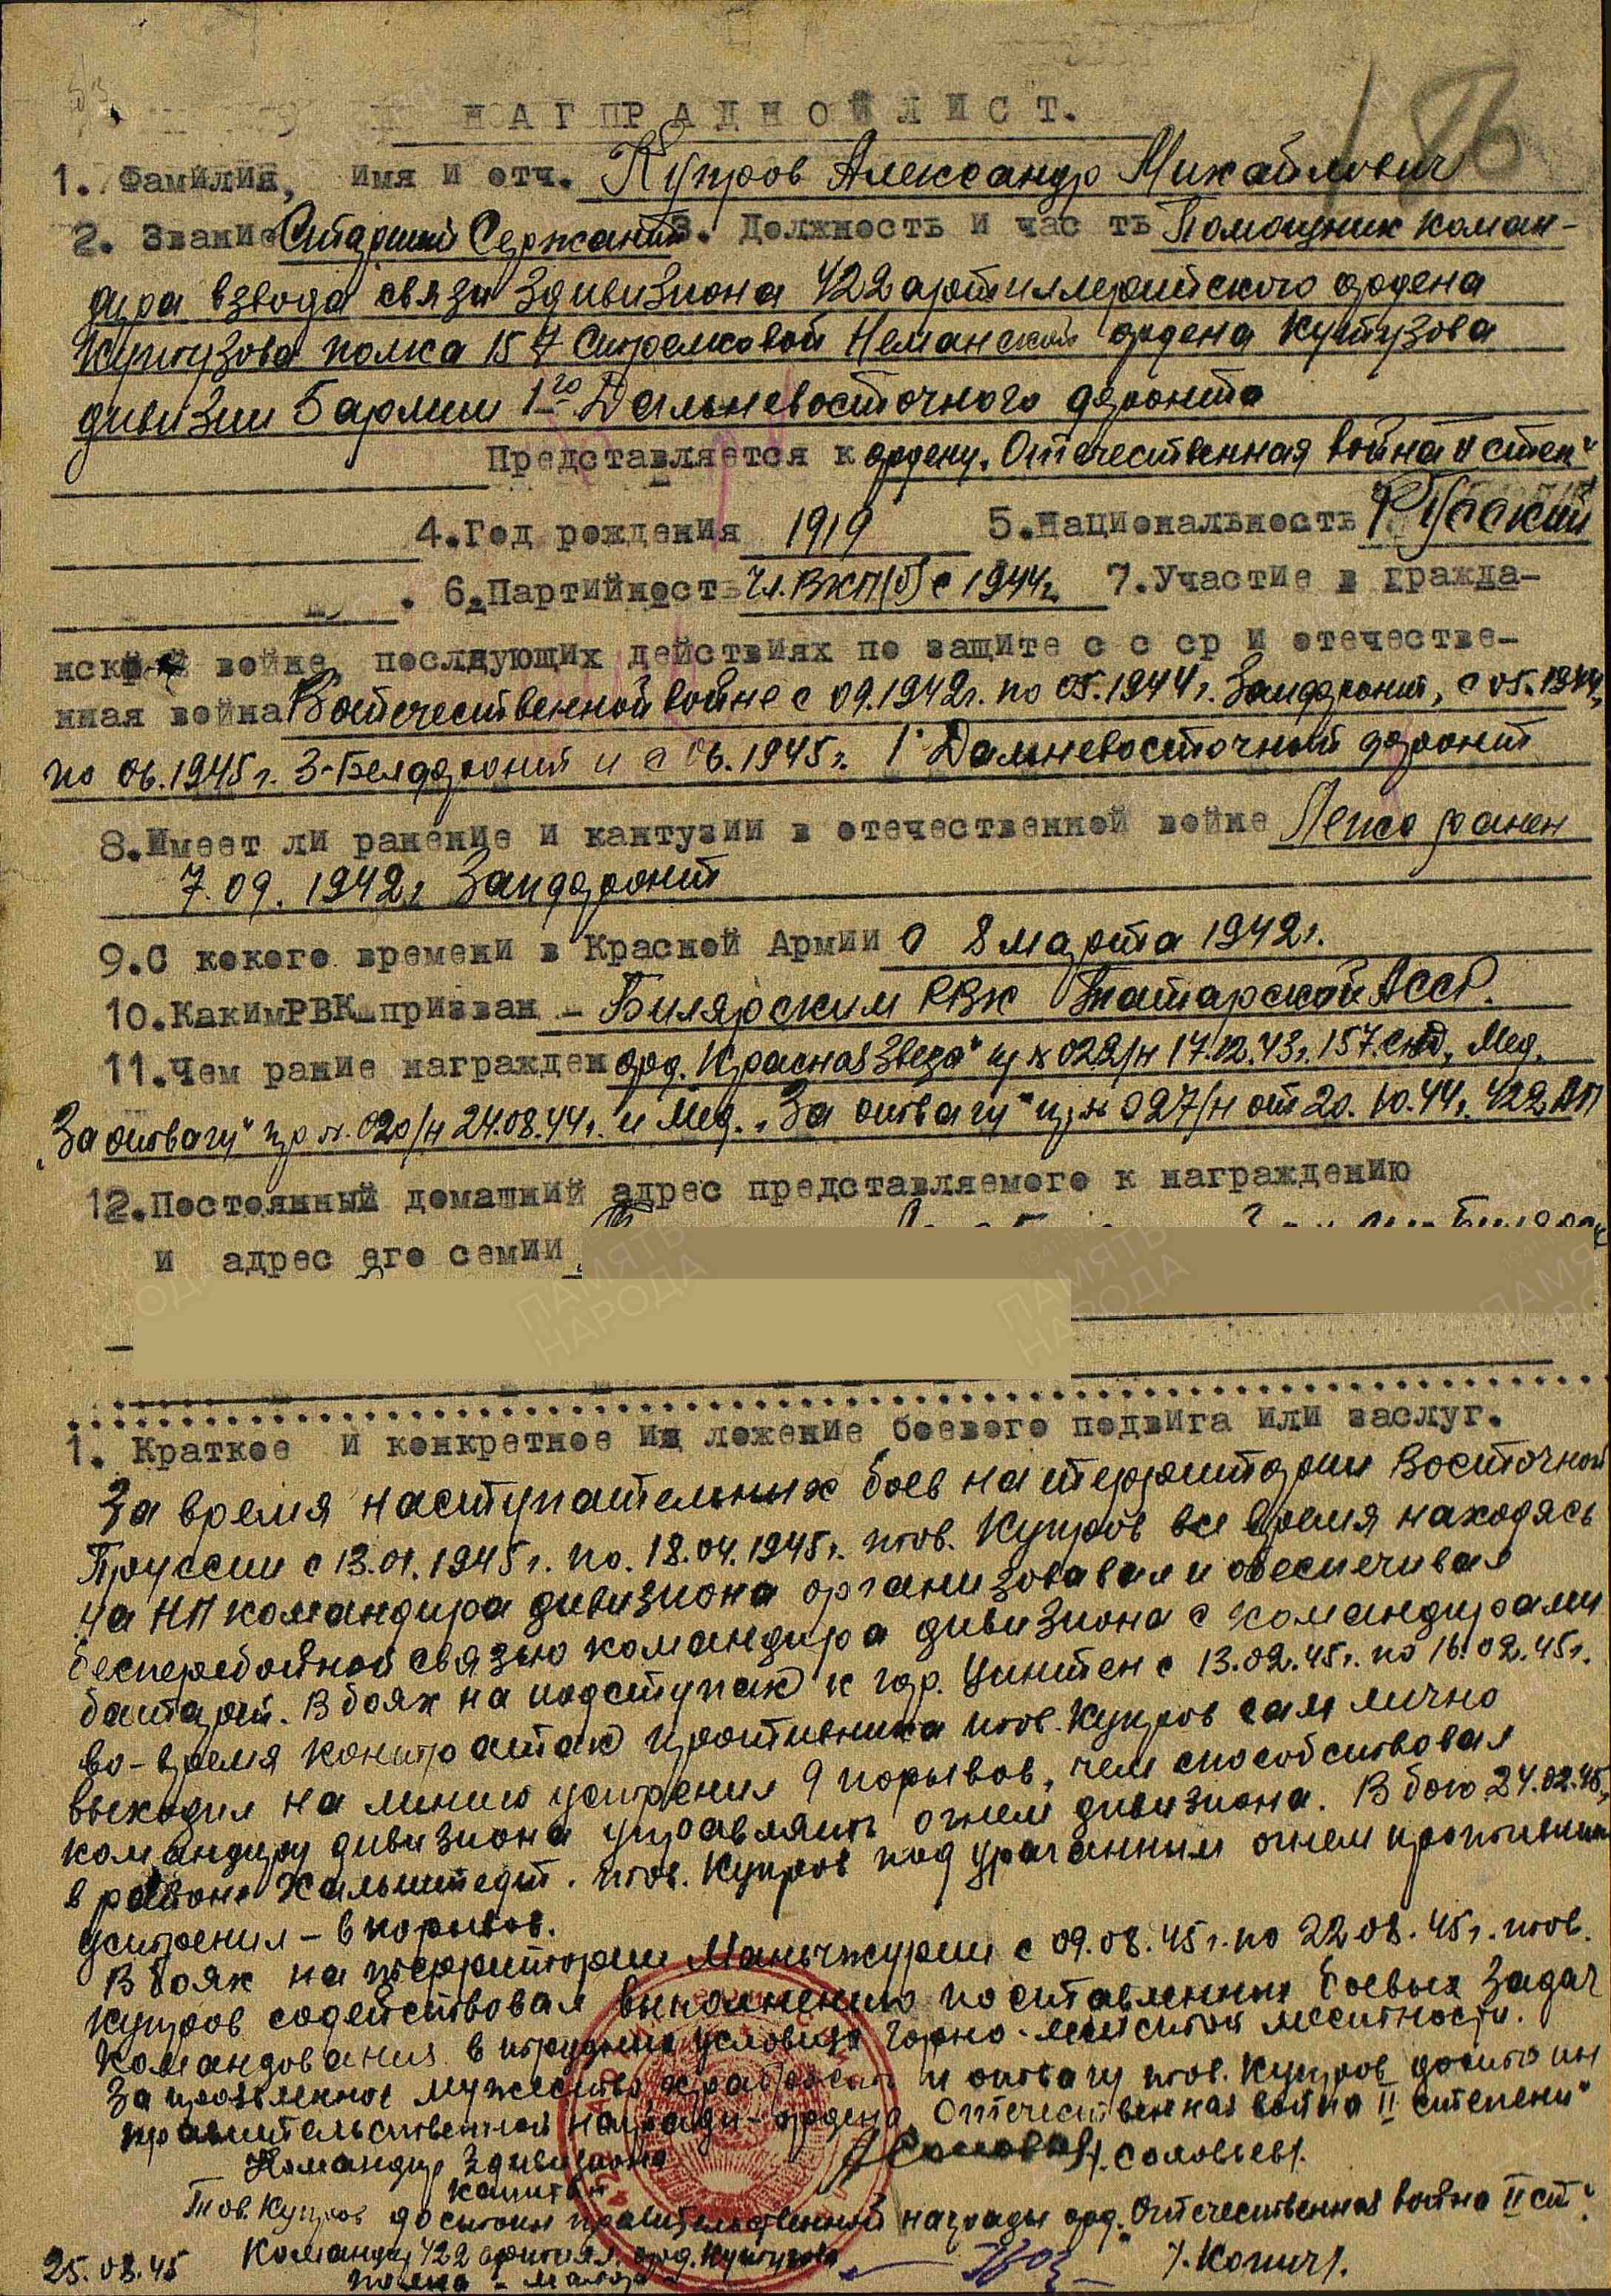 186
НАГПРАДНОЙ ЛИСТ.
1. Фамилия, имя и отч. Купров Александр Михайлович
2. Звание Старший Сержант 3. Должность и час ть Помощник коман-
дира взвода связи 3 дивизиона 422 артиллерийского ордена
Кутузова полка 157 Стрелковой Неманской ордена Кутузова
дивизии 5 армии 1го Дальневосточного фронта
Представляется к ордену „Отечественная война II степ"
4. Год рождения 1919 5. Национальность Русский
6. Партийность Чл. ВКП(б) с 1944г. 7. Участие в гражда-
нской войне, послдующих действиях по защите с с ср и отечестве-
нная война В отечественной войне с 09.1942г. по 05.1944г. Запфронт, с 05.1944г.
по 06.1945г. 3-Белфронт и с 06.1945г. 1 Дальневосточный фронт
8. Имеет ли ранение и кантузии в отечественной войне Легко ранен
7.09.1942г Запфронт
9. С кокого времени в Красной Армии С 8 марта 1942г.
10. Каким РВК призван - Билярским РВК Татарской АССР.
11. Чем рание награжден орд. „Красная Звезда" пр № 022/н 17.12.43г. 157 сд, Мед.
„За отвагу" пр №. 020/н 24.08.44г. и Мед. „За отвагу" пр № 027/н от 20.10.44г. 422 АП
12. Постоянный домашний адрес представляемого к награждению
и адрес его семии
ПАМЯТЬ НАРОДА
1. Краткое и конкретное из ложение боевого подвига или заслуг.
За время наступательных боев на территории Восточной
Пруссии с 13.01.1945г. по. 18.04.1945г. тов. Купров все время находясь
на НП командира дивизиона организовывал и обеспечивал
бесперебойной связью командира дивизиона с командирами
батарей. В боях на подступах к гор. Цинтен с 13.02.45г. по 16.02.45г.
во-время контратак противника тов. Купров сам лично
выходил на линию устренил 9 порывов, чем способствовал
командиру дивизиона управлять огнем дивизиона. В бою 24.02.45г.
в районе Кальштедт. тов. Купров под ураганным огнем противника
устренил - 6 порывов.
В боях на территории Маньчжурии с 09.08.45г. по 22.08.45г. тов.
Купров содействовал выполнению поставленных боевых задач
командования в трудных условиях горно-лесистой местности.
За проявленное мужество храбрость и отвагу тов. Купров достоин
правительственной награды - ордена „Отечественная война II степени"
Командир 3 дивизиона
капитан /Соловьев/.
Тов. Купров достоин правительственной награды орд. „Отечественная война II ст".
Командир 422 артилл. орд. Кутузова
полка - майор /. Копич/.
25.08.45